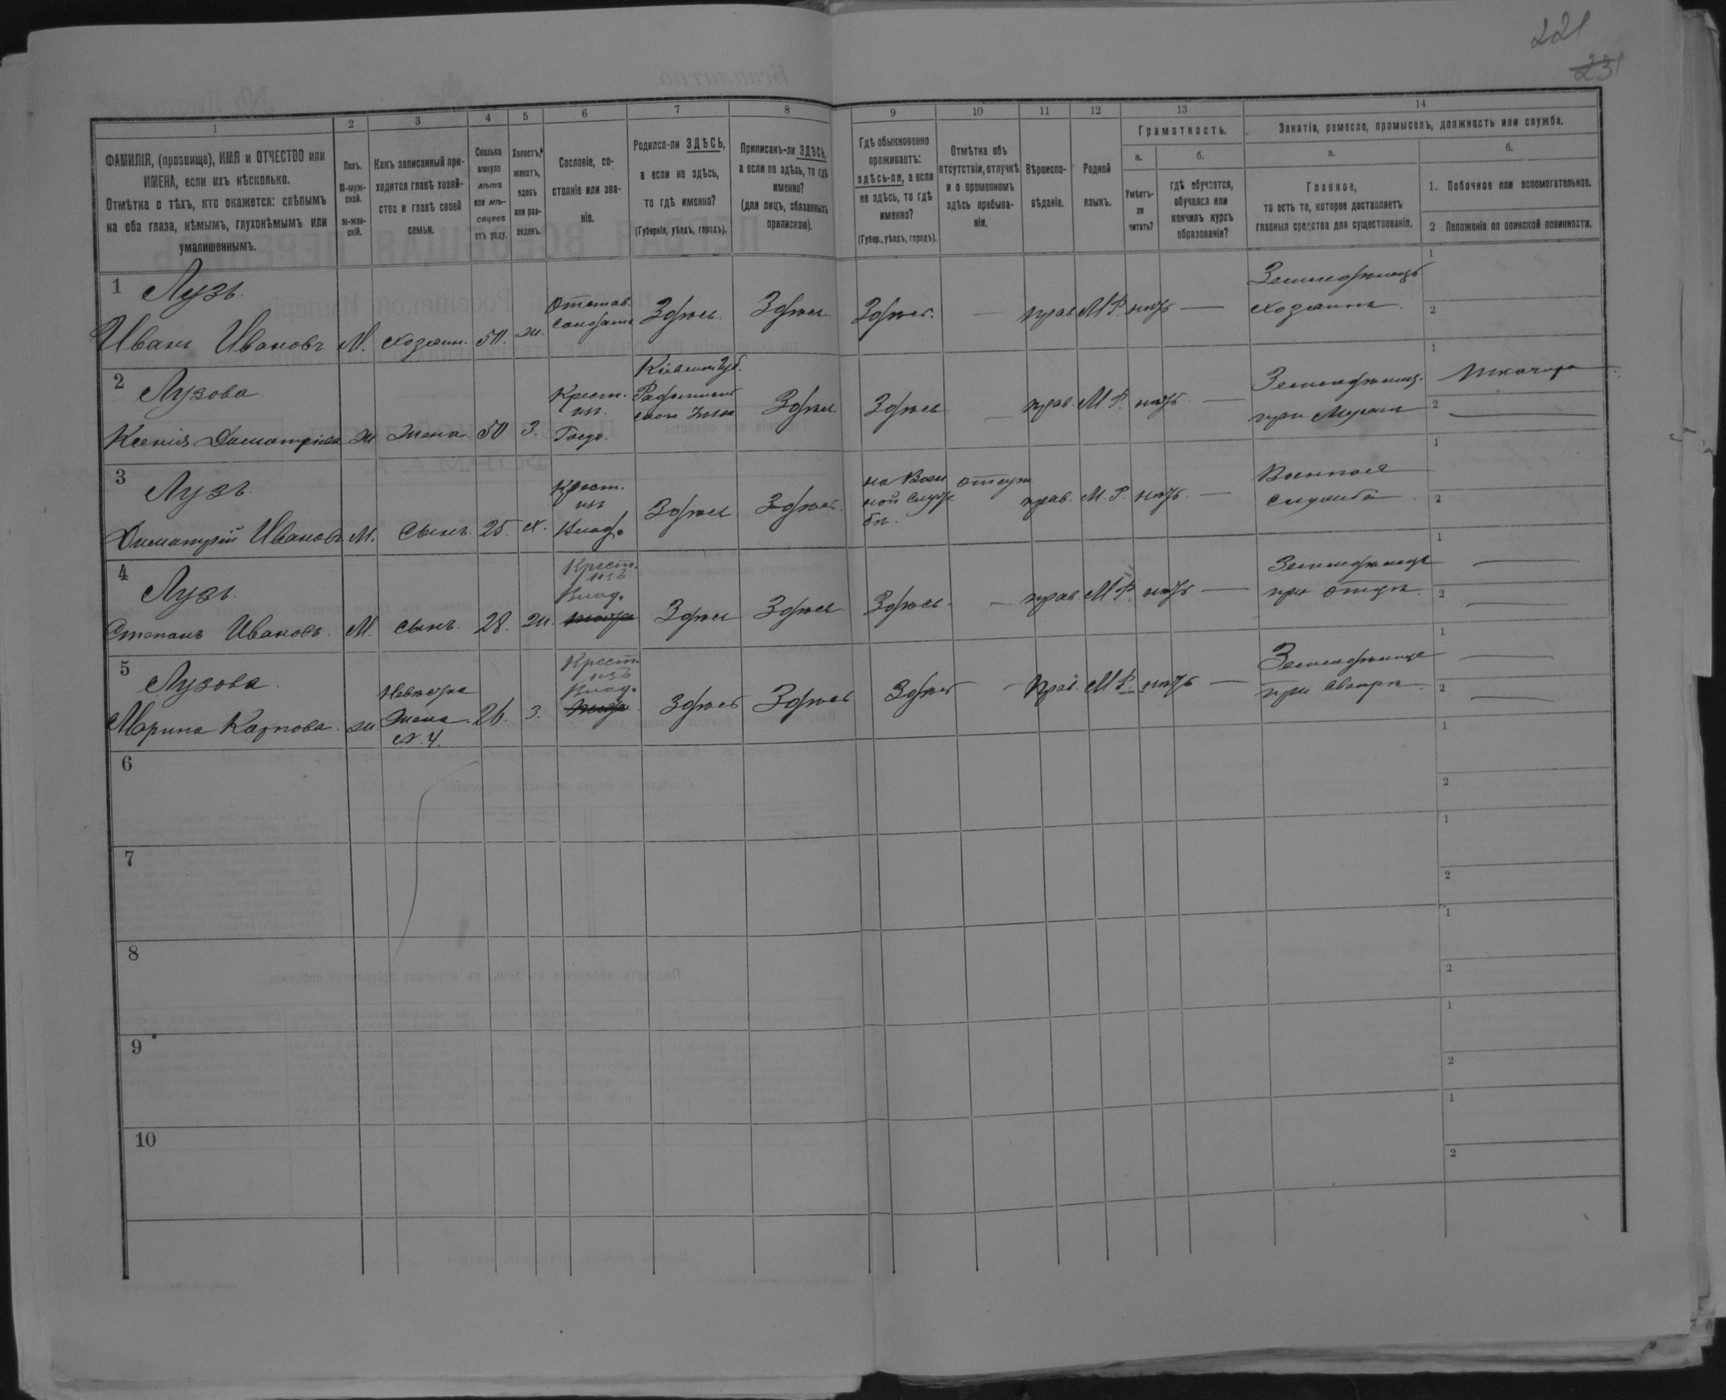 221
231
1 2 3 4 5 6 7 8 9 10 11 12 13 14
ФАМИЛІЯ, (прозвище), ИМЯ и ОТЧЕСТВО или
ИМЕНА, если ихъ нѣсколько.
Отмѣтка о тѣхъ, кто окажется: слѣпымъ
на оба глаза, нѣмымъ, глухонѣмымъ или
умалишеннымъ.
Полъ.
М-муж-
ской.
ж-жен-
скій.
Какъ записанный при-
ходится главѣ хозяй-
ства и главѣ своей
семьи.
Сколько
минуло
лѣтъ
или мѣ-
сяцевъ
отъ роду.
Холостъ,
женатъ,
вдовъ
или раз-
веденъ.
Сословіе, со-
стояніе или зва-
ніе.
Родился-ли ЗДѢСЬ,
а если не здѣсь,
то гдѣ именно?
(Губернія, уѣздъ, городъ).
Приписанъ-ли ЗДѢСЬ,
а если не здѣсь, то гдѣ
именно?
(для лицъ, обязанныхъ
припискою).
Гдѣ обыкновенно
проживаетъ:
здѣсь-ли, а если
не здѣсь, то гдѣ
именно?
(Губер., уѣздъ, городъ).
Отмѣтка объ
отсутствіи, отлучкѣ
и о временномъ
здѣсь пребыва-
ніи.
Вѣроиспо-
вѣданіе.
Родной
языкъ.
Грамотность.
а.
Умѣетъ-
ли
читать?
б.
гдѣ обучается,
обучался или
кончилъ курсъ
образованія?
Занятія, ремесло, промыселъ, должность или служба.
а.
Главное,
то есть то, которое доставляетъ
главныя средства для существованія.
б.
1. Побочное или вспомогательное.
2 Положеніе по воинской повинности.
1 Лузъ
Иванъ Ивановъ М. хозяин. 50. ж. Отстав. солдатъ Здѣсь Здѣсь Здѣсь. — прав. М Р. нѣтъ — Земледѣлецъ хозяинъ 1 2
2 Лузова
Ксенія Дмитріева ж жена 50 З. Крест. изъ Госуд. Кіевской Губ. Здѣсь Здѣсь — прав. М Р. нѣтъ — при Мужѣ 1 Ткачиха 2 —
3 Лузъ
Димитрій Ивановъ М. сынъ 25. х. Крест. изъ Влад. Здѣсь Здѣсь. на Воен ной служ бѣ. отсут прав. М. Р. нѣтъ. — Военная служба 1 2
4 Лузъ
Степанъ Ивановъ. М. сынъ. 28. ж. Крест. изъ Влад. Здѣсь Здѣсь Здѣсь — прав. М Р. нѣтъ — Земледѣлецъ при отцѣ 1 — 2 —
5 Лузова
Марина Карпова ж Невѣстка Жена № 4. 26. З. Крест. изъ Влад. Здѣсь Здѣсь Здѣсь — Прав. М Р. нѣтъ — при свекрѣ 1 — 2 —
6 1 2
7 1 2
8 1 2
9 1 2
10 1 2